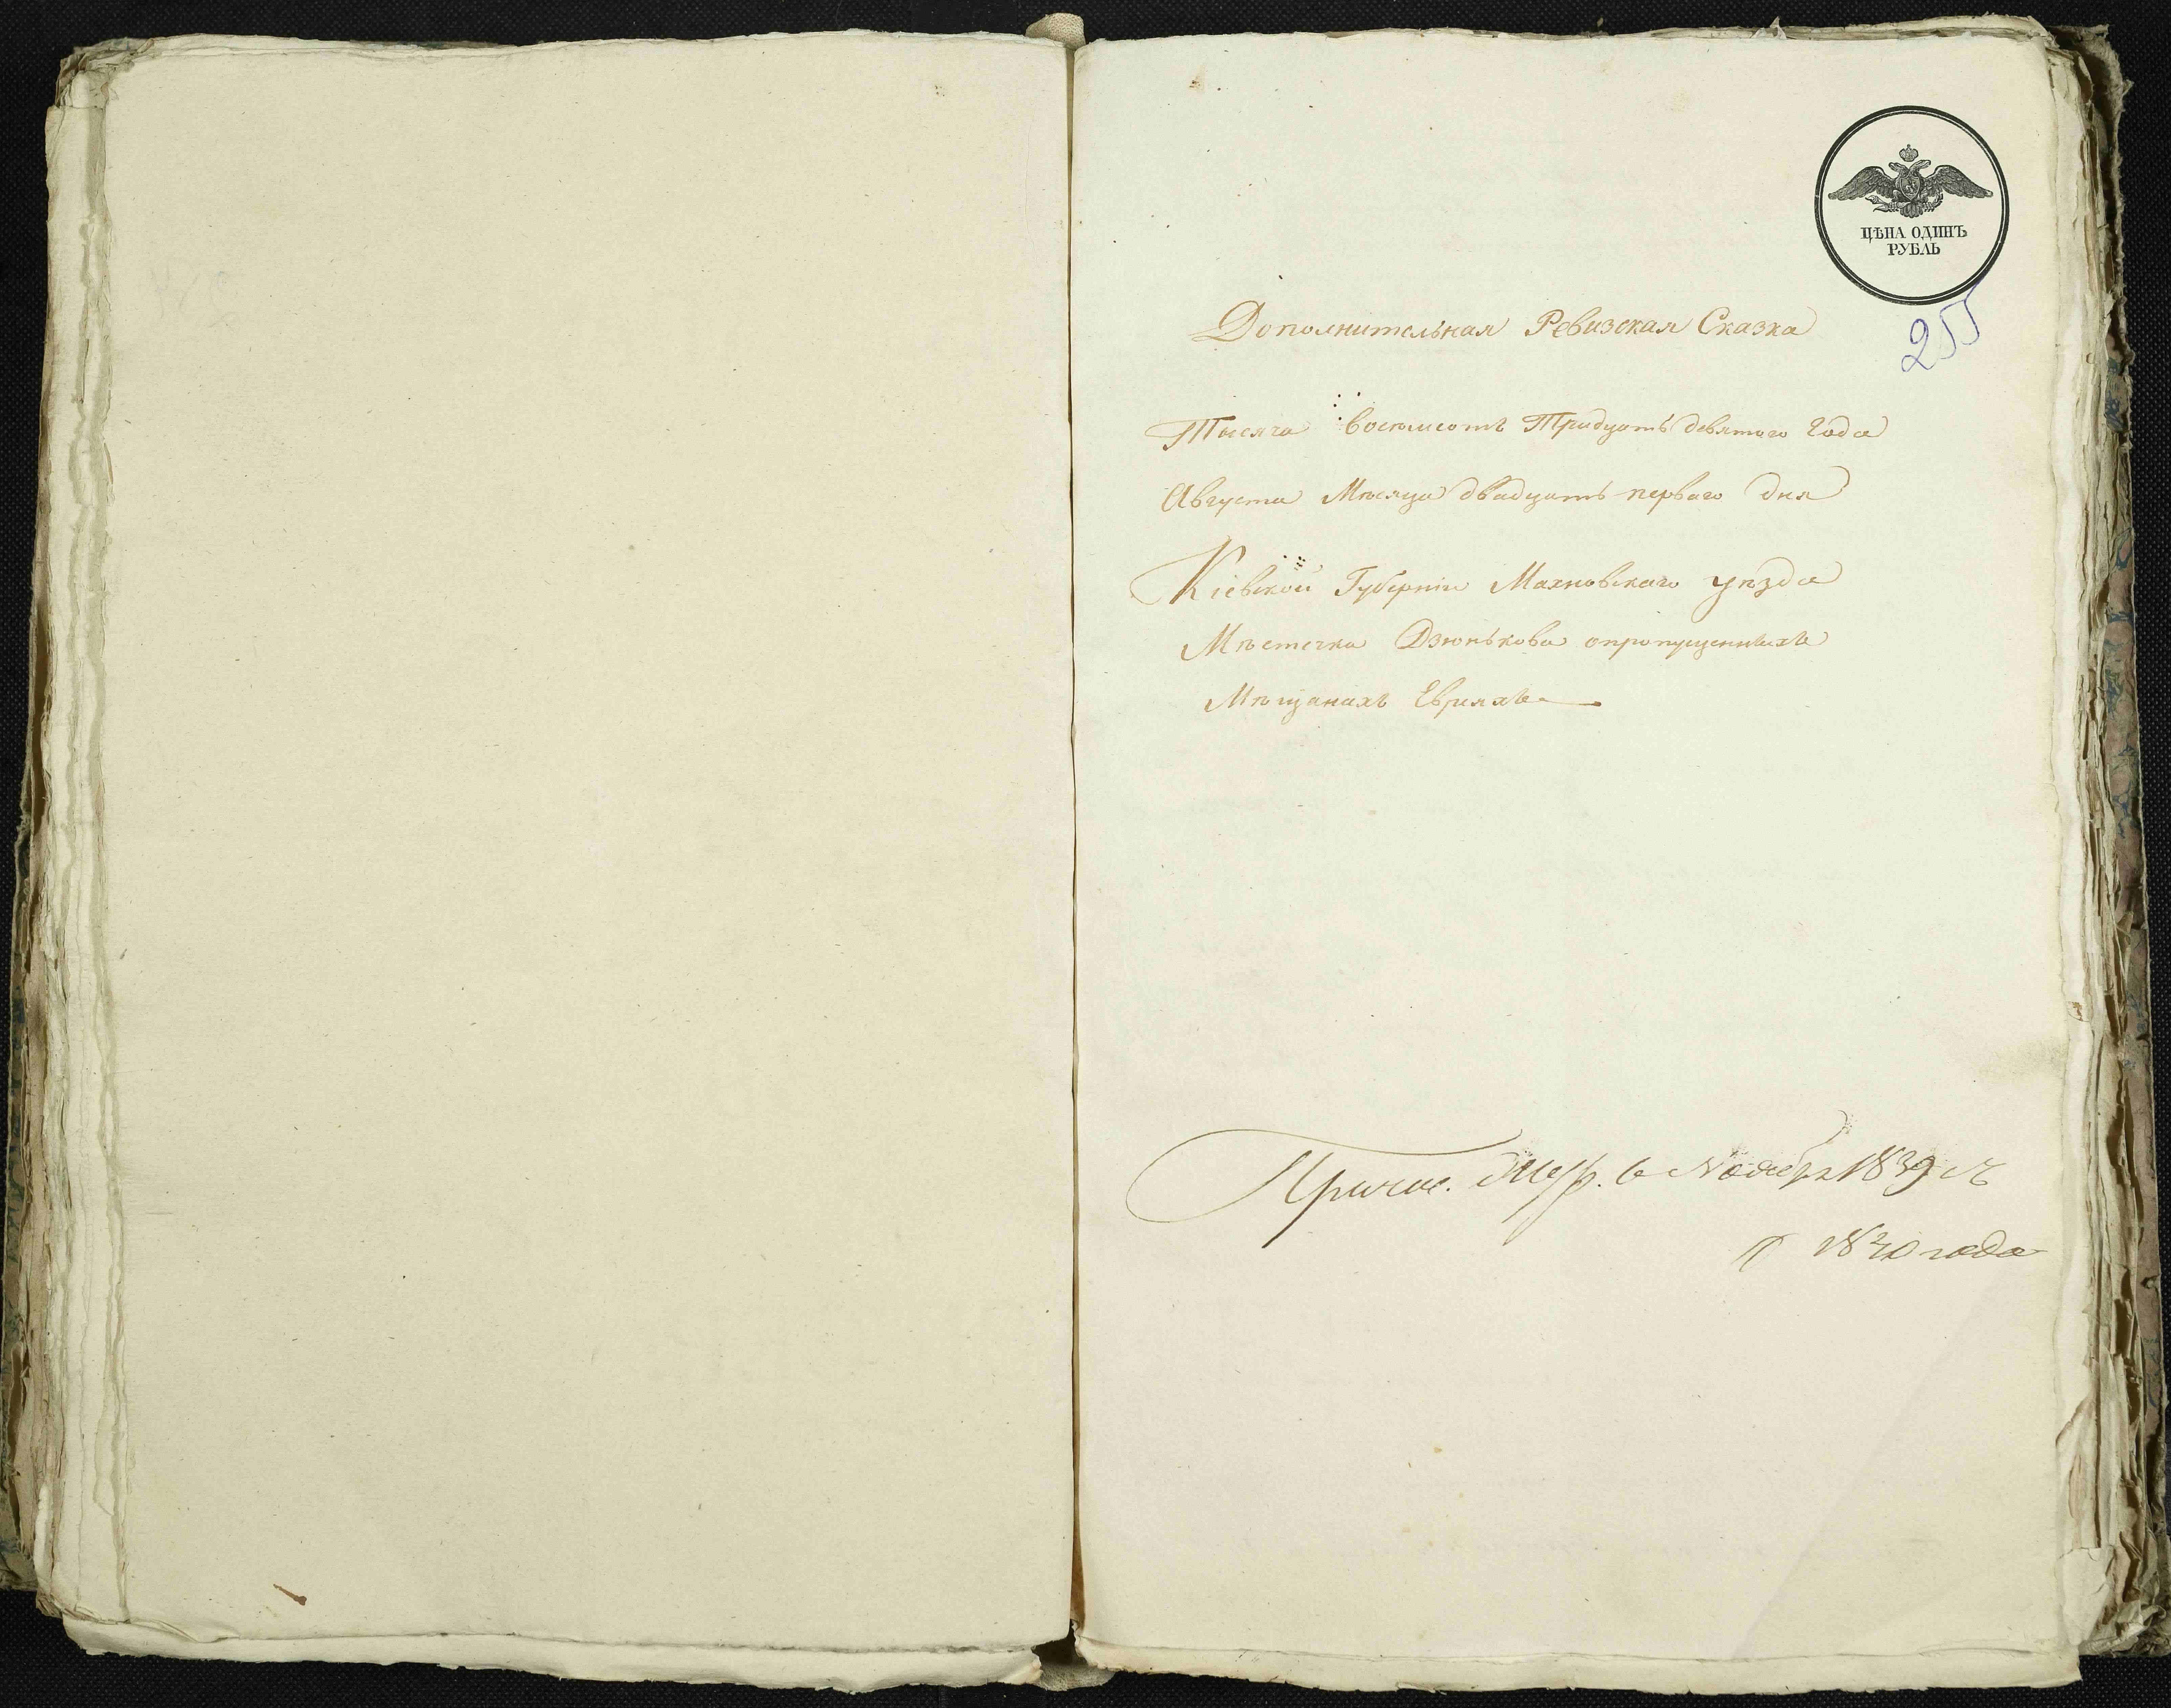 ЦѢНА ОДИНЪ
РУБЛЬ
255
Дополнительная Ревизская Сказка
Тысяча восемсотъ Тридцать девятого Года
Августа Мѣсяца двадцать перваго дня
Кіевской Губерніи Махновскаго уѣзда
Мѣстечка Дзюнькова опропущенныхъ
Мѣщанахъ Евреяхъ
6 Ноября 1839
1840 года